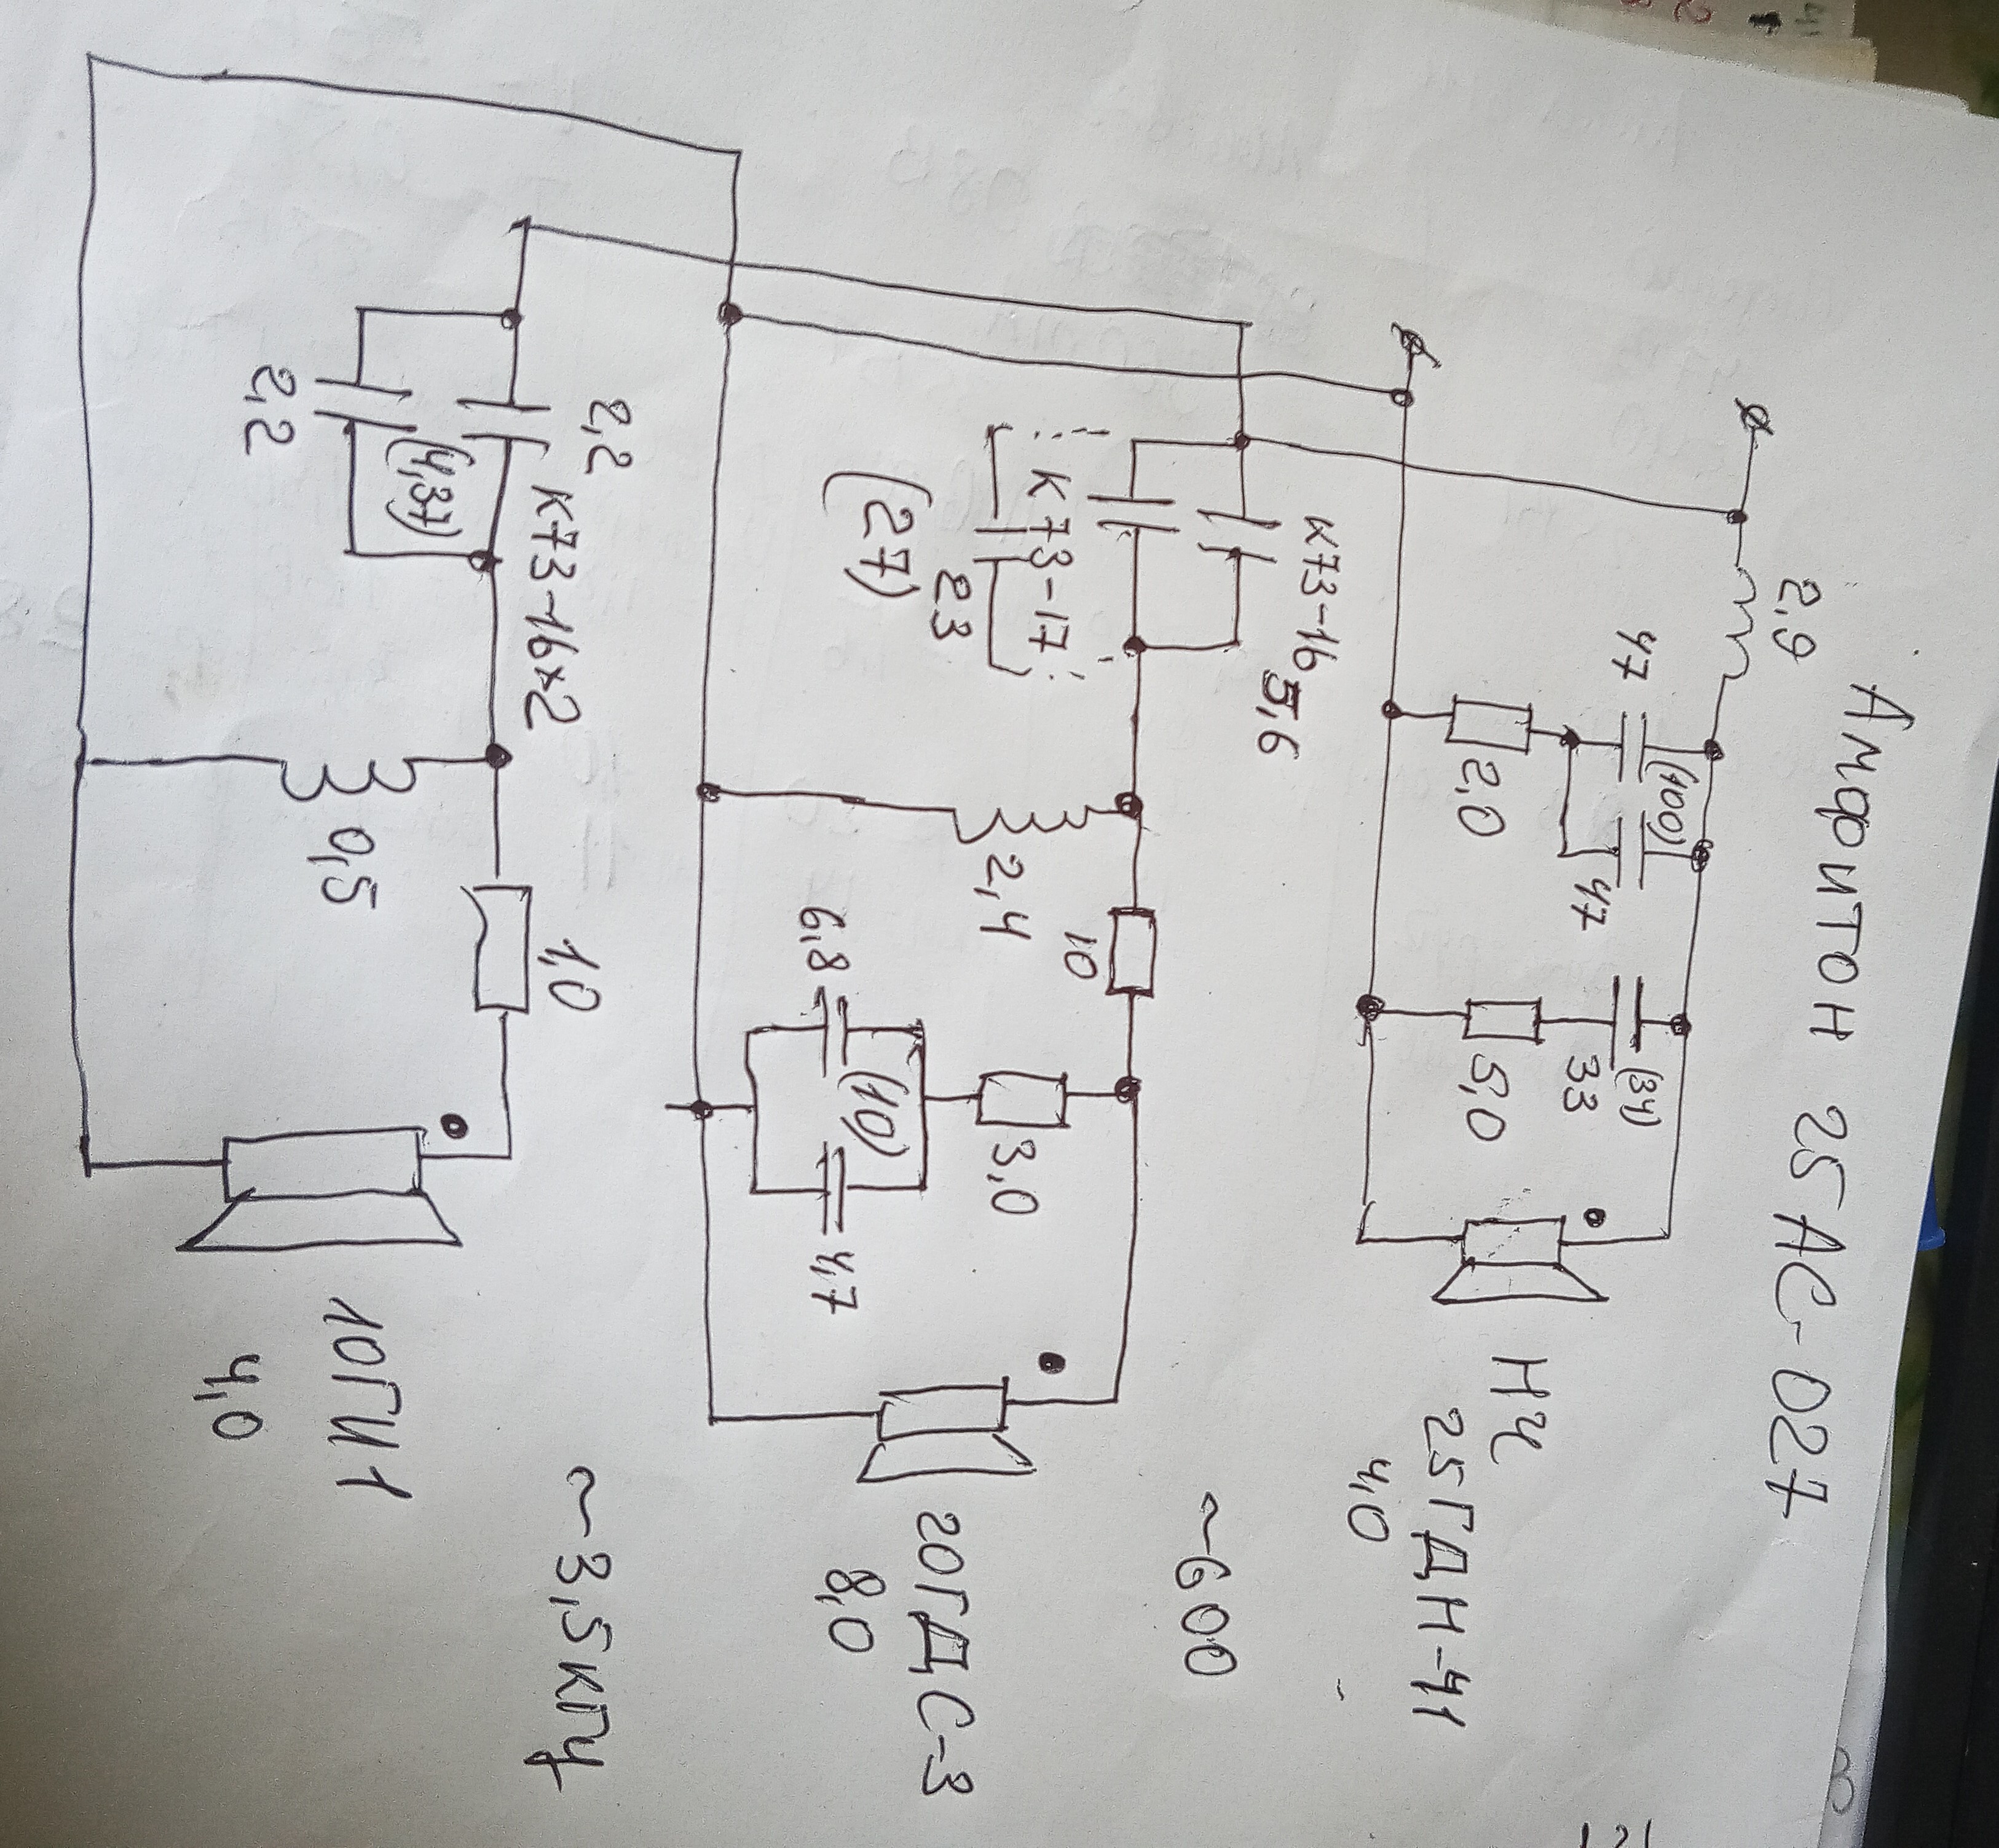 Амфитон 25АС-027
2,9
47
(100)
47
2,0
(34)
33
5,0
НЧ
25ГДН-41
4,0
~600
К73-16
5,6
К73-17
23
(27)
2,4
10
3,0
6,8
(10)
4,7
20ГДС-3
8,0
~3,5кГц
2,2
К73-16x2
(4,37)
2,2
0,5
1,0
10ГИ1
4,0